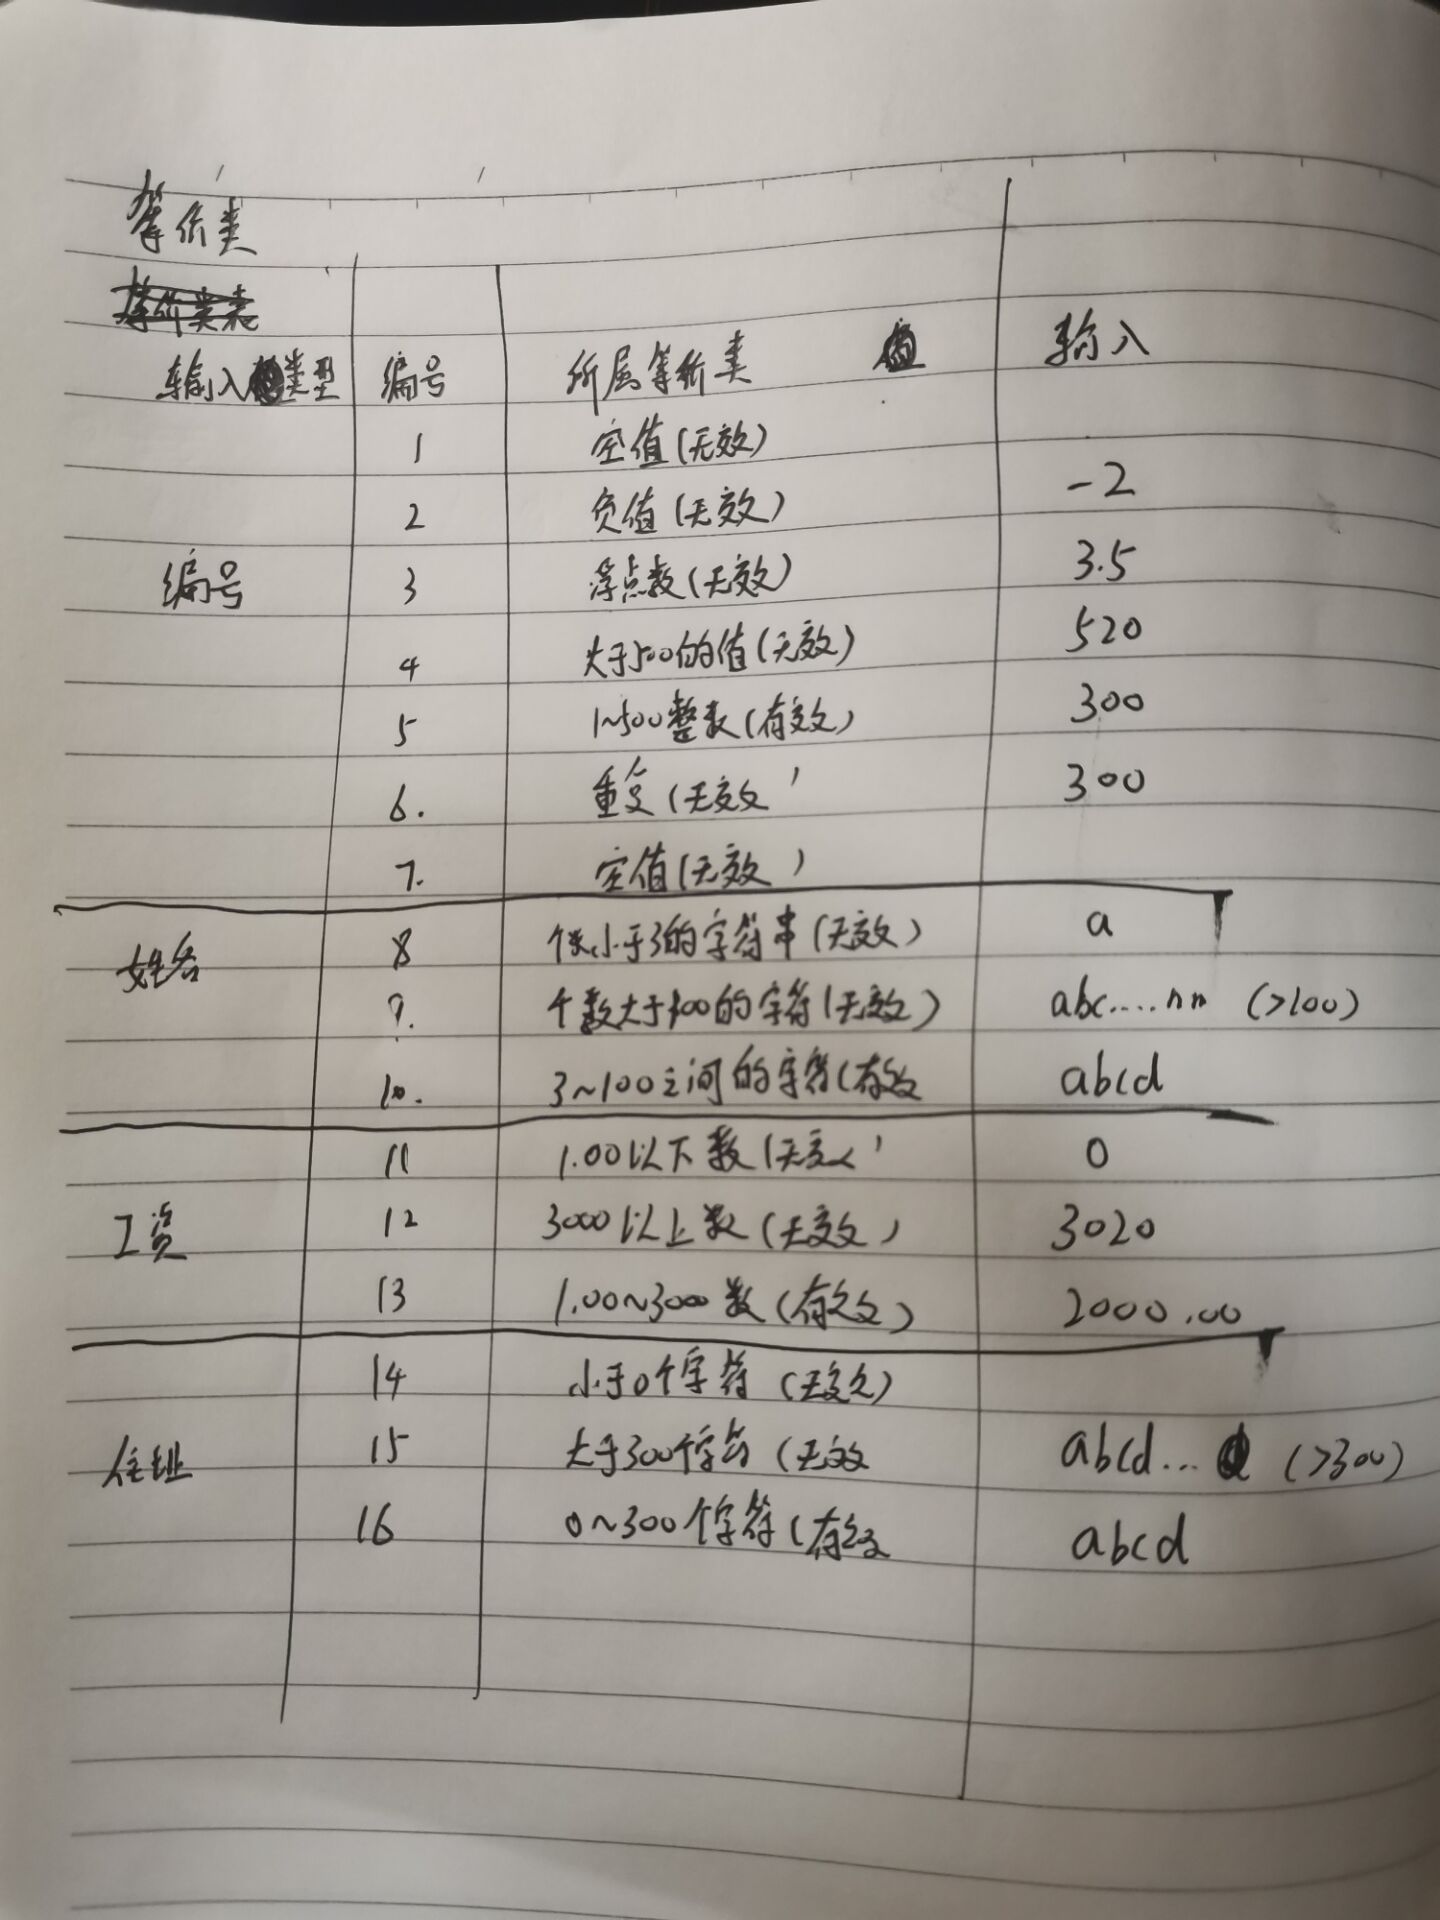 等价类
等价类表
输入类型 编号 所属等价类 输入
1 空值(无效)
2 负值(无效) -2
编号 3 浮点数(无效) 3.5
4 大于500的值(无效) 520
5 1~500整数(有效) 300
6. 重复(无效) 300
7. 空值(无效)
姓名 8 个数小于3的字符串(无效) a
9. 个数大于100的字符(无效) abc....nn (>100)
10. 3~100之间的字符(有效 abcd
11 1.00以下数(无效) 0
工资 12 3000以上数(无效) 3020
13 1.00~3000数(有效) 2000.00
14 小于0个字符(无效)
住址 15 大于300个字符(无效 abcd... (>300)
16 0~300个字符(有效 abcd